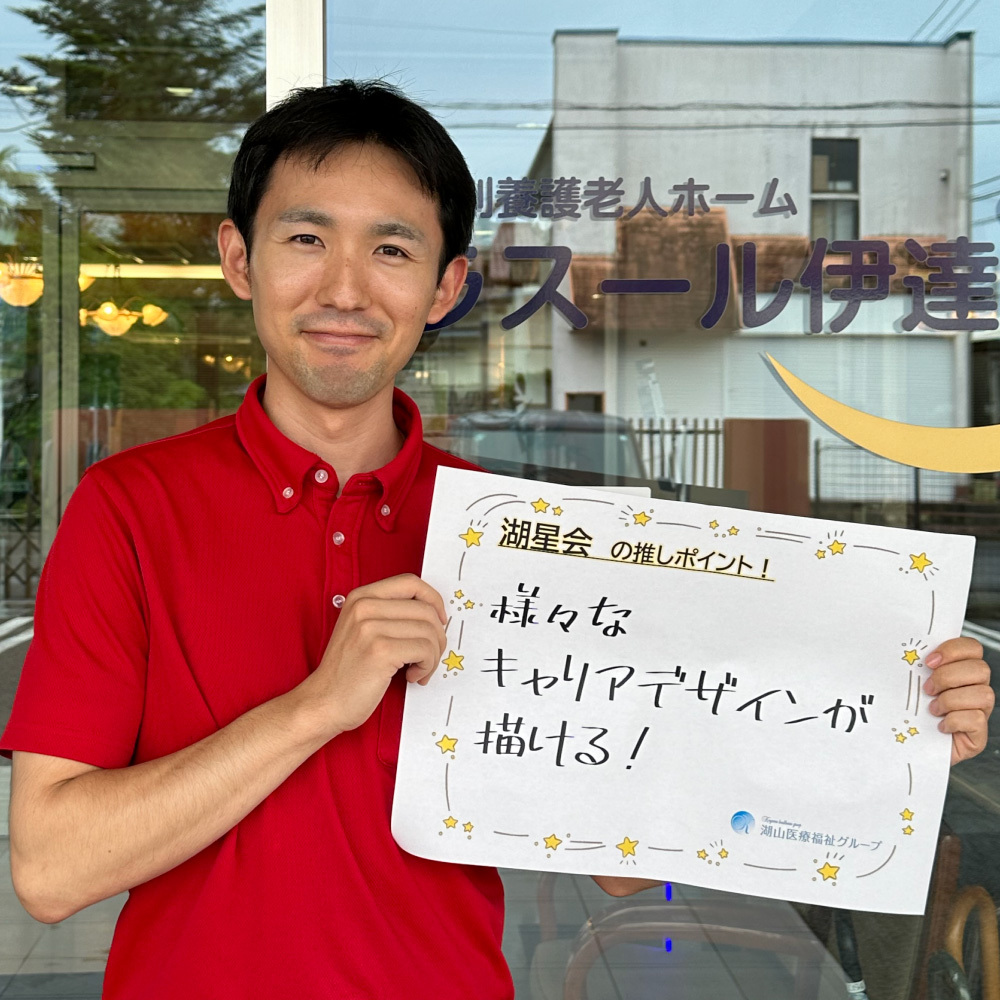 別養護老人ホーム
ラスール伊達
湖星会 の推しポイント!
様々な
キャリアデザインが
描ける!
湖山医療福祉グループ